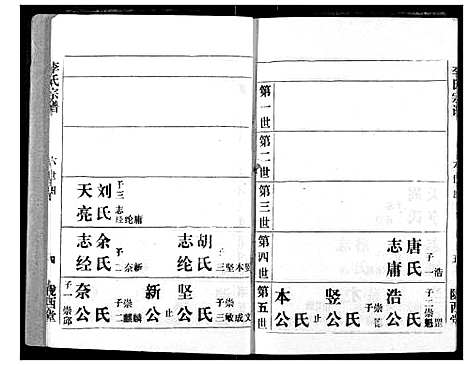 李氏宗譜
第一世
第二世
第三世
第四世
第五世
唐氏
志庸
子一 浩
浩公 氏
子二 崇魁
竖公 氏
子一 崇
本公 氏 止
陇西堂
李氏宗譜
刘氏
天亮
子三 志经纶庸
胡氏
志纶
子三 坚本竖
余氏
志经
子二 奈新
坚公 氏
子三 崇敏成文
新公 氏 止
奈公 氏
子二 崇麒麟
子一 崇郎
四
陇西堂